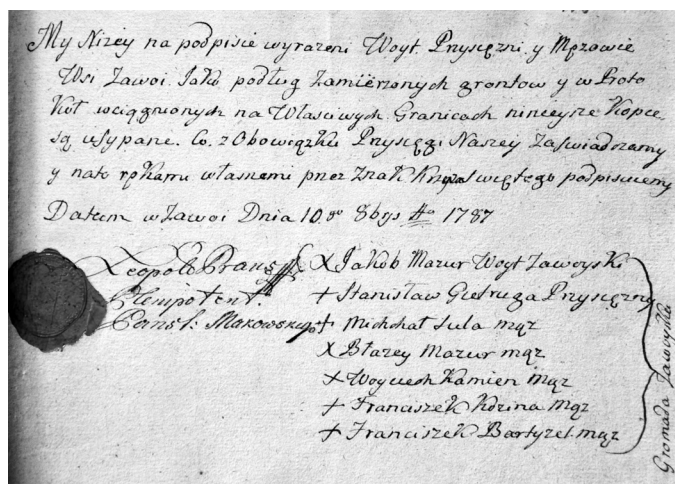 My Niżey na podpisie wyrażeni Woyt, Przysięzni, y Męzowie
Wsi Zawoi. Jako podług Zamiérzonych grontow y w Proto
kół wciągnionych na Właściwych Granicach ninieysze Kopce
są usypane. Co z Obowiązku Przysięgi Naszey Zaświadczamy
y nato rękami własnemi przez Znak Krzyża świętego podpisuiemy
Datum w Zawoi Dnia 10. go 8bris Ao 1787
Leopold
Plenipotent.
Państ: Makowskiego
X Jakób Mazur Woyt Zawoyski
+ Stanisław Gietruga Przysięzny
+ Michał Sula mąz
X Błazey Mazur mąz
+ Woyciech Kamien mąz
+ Franciszek Kozina mąz
+ Franciszek Bartyzel mąz
Gromada Zawoyska